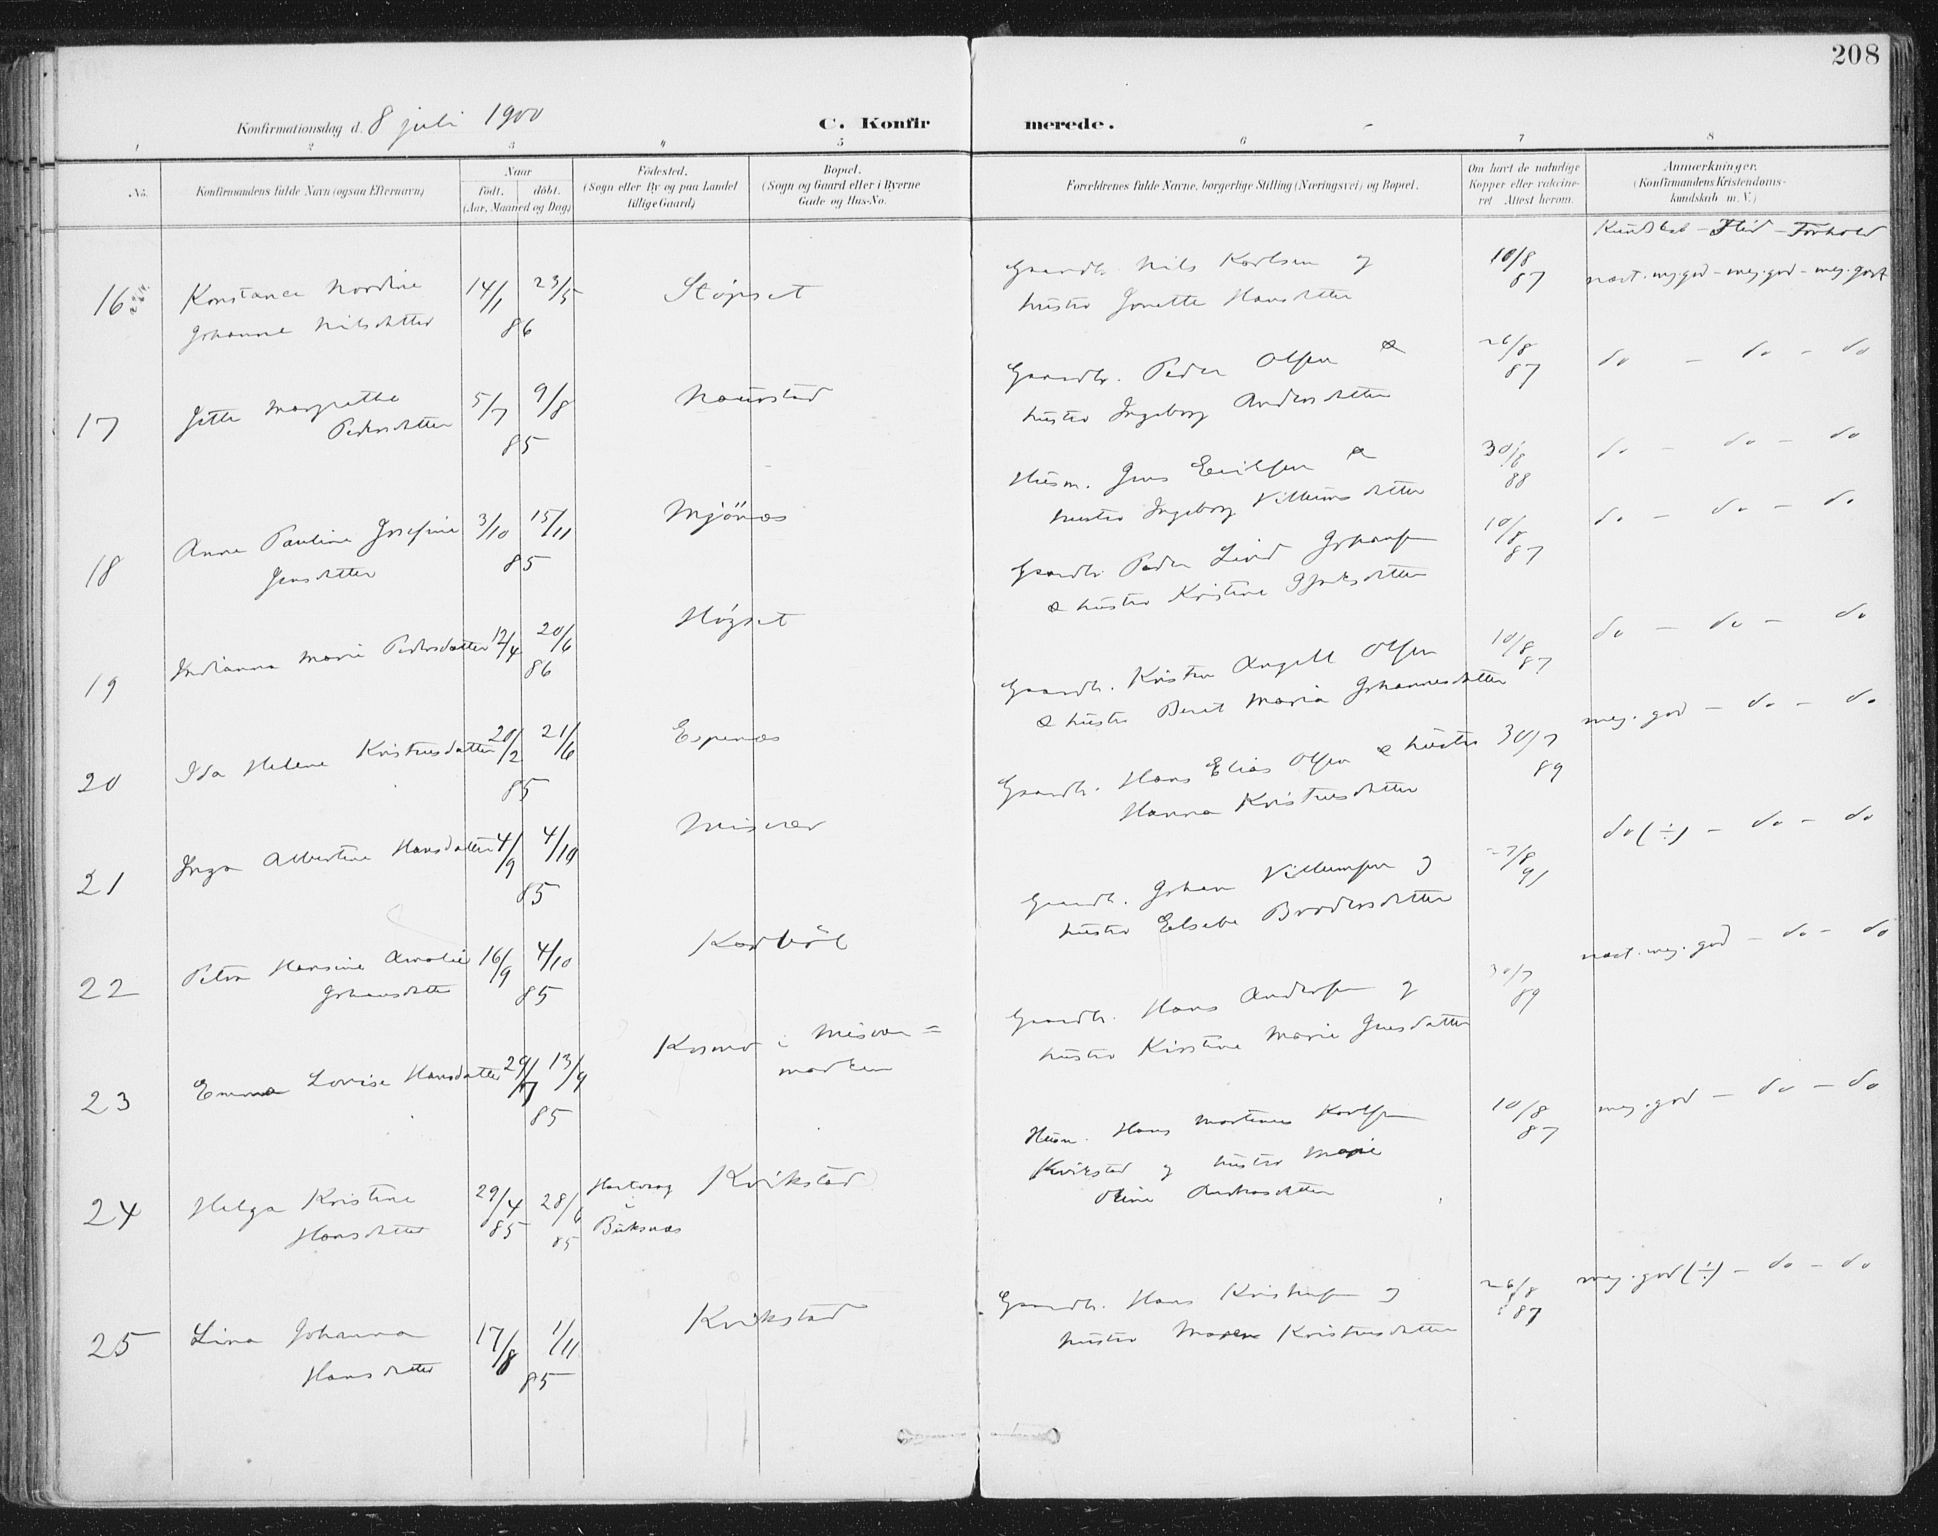 208
Konfirmationsdag d. 8 juli 1900
C. Konfirmerede.
1 2 3 4 5 6 7 8
No. Konfirmandens fulde Navn (ogsaa Efternavn)
Naar født. døbt. (Aar, Maaned og Dag)
Fødested. (Sogn eller By og paa Landet tillige Gaard)
Bopæl. (Sogn og Gaard eller i Byerne Gade og Hus-No.
Forældrenes fulde Navne, borgerlige Stilling (Næringsvei) og Bopæl.
Om havt de naturlige Kopper eller vaccineret Attest herom.
Anmærkninger. (Konfirmandens Kristendomskundskab m. V.)
Kundskab – Flid – Forhold
16 Konstance Nordine 14/1 23/5 Støpset Gaardb. Nils Karlsen og 10/8 næst. mg. god – meg. god – meg. godt
Johanna Nilsdatter 86 hustru Jonette Hansdatter 87
17 Jette Margrethe 5/7 9/8 Naurstad Gaardb. Peder Olsen & 26/8 do – do – do
Pedersdatter 85 hustru Ingeborg Andersdatter 87
18 Anna Pauline Josefine 3/10 15/11 Mjönæs Husm. Jens Erilsen & 30/8 do – do – do
Jensdatter 85 hustru Ingeborg Villumsdatter 88
19 Indianna Marie Pedersdatter 12/4 20/6 Høgset Gaardb. Peder Lind Johansen 10/8 do – do – do
86 & hustru Kristine 87
20 Ida Helene Kristensdatter 20/2 21/6 Espenæs Gaardb. Kristen Angell Olsen 10/8 do – do – do
85 & hustru Berit Maria Johannesdatter 87
21 Inga Albertine Hansdatter 4/9 4/10 Misvær Gaardb. Hans Elias Olsen & hustru 30/7 meg. god – do – do
85 Hanna Kristensdatter 89
22 Petra Hansine Amalie 16/9 4/10 Karbøl Gaardb. Johan Villumsen og 27/8 do (÷) – do – do
Johansdatter 85 hustru Elsebe Brodersdatter 91
23 Emma Lovise Hansdatter 29/7 13/9 Kosmo i Misvær= Gaardb. Hans Andersen og 30/7 næst. meg. god – do – do
85 marken hustru Kirstine Marie Jensdatter 89
24 Helga Kristine 29/4 28/6 i Kvikstad Husm. Hans Martinus Karlsen 10/8 meg. god – do – do
Hansdatter 85 85 Buksnæs Kvikstad og hustru Marie 87
Oline Andreasdatter
25 Lina Johanna 17/8 1/11 Kvikstad Gaardb. Hans Kristensen og 26/8 meg. god (÷) – do – do
Hansdatter 85 hustru Maren Kristensdatter 87